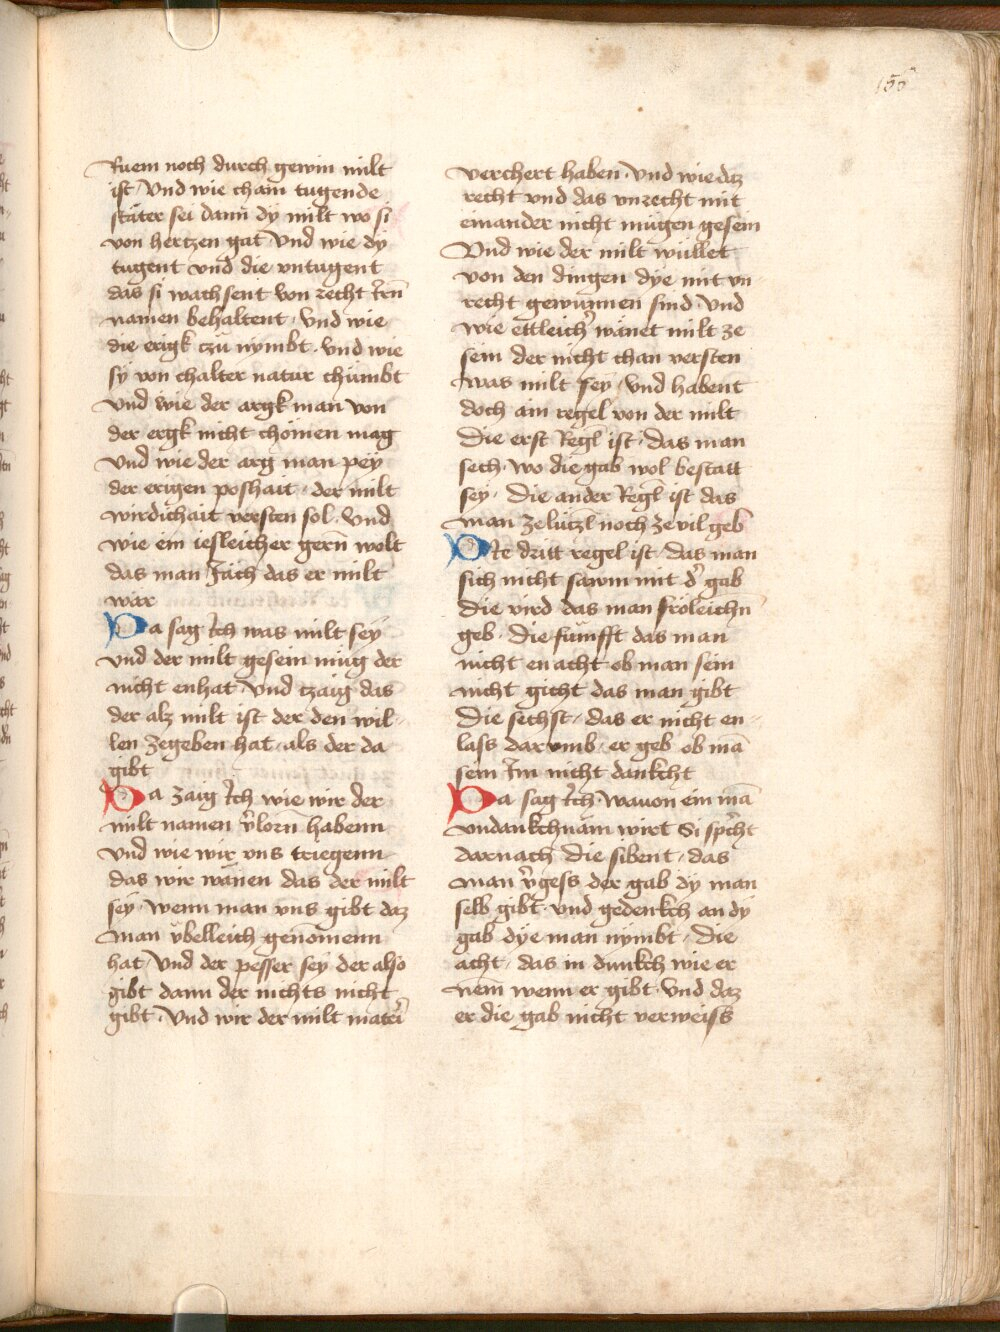 155
Ruem noch durch gewin milt
ist · Vnd wie chain tugende
stäter sei dann dy milt wo si
von hertzen gat Vnd wie dy
tugent vnd die vntugent
das si wachsent von recht irn̄
namen behaltent · Vnd wie
die erigk czu nymbt · Vnd wie
sy von chalter natur chümbt
Vnd wie der argk man von
der ergk nicht chömen mag
Vnd wie der arg man pey
der erigen poshait · der milt
wirdichait versten sol · Vnd
wie ein iesleicher gern̄ wolt
das man Jäch das er milt
wär
Da sag ich was milt sey
vnd der milt gesein müg der
nicht enhat Vnd czaig das
der alz milt ist der den wil-
len zegeben hat · als der da
gibt
Da zaig ich wie wir der
milt namen v̉lorn̄ habenn
Vnd wie wir vns triegenn
das wir wänen das der milt
sey · wenn man vns gibt daz
man vbelleich genomenn
hat · Vnd der pesser sey der also
gibt dann der nichts nicht
gibt · Vnd wir der milt materi
verchert haben · Vnd wie daz
recht vnd das vnrecht mit
einander nicht mügen gesein
Vnd wie der milt wüllet
von den dingen dye mit vn
recht gewunnen sind Vnd
wie ettleich̉ wänet milt ze
sein der nicht chan versten
was milt sey · Vnd habent
doch ain regel von der milt
Die erst Regl ist · das man
sech · wo die gab wol bestatt
sey · Die ander Regl ist das
man zelützl noch ze vil geb
Die dritt regel ist · das man
sich nicht sawm mit d̉ gab
Die vird das man fröleichn̄
geb · Die fümfft das man
nicht en acht ob man sein
nicht gicht das man gibt
Die sechst · das er nicht en-
lass darumb · er geb ob mā
sein im nicht dankcht
Da sag ich · wauon ein mā
vndankchnäm wirt Si spricht
darnach Die sibent · das
man v̉gess der gab dy man
selb gibt · vnd gedenkch an dy
gab dye man nymbt · Die
acht · das in dunkch wie er
nem wenn er gibt · vnd daz
er die gab nicht verweiss